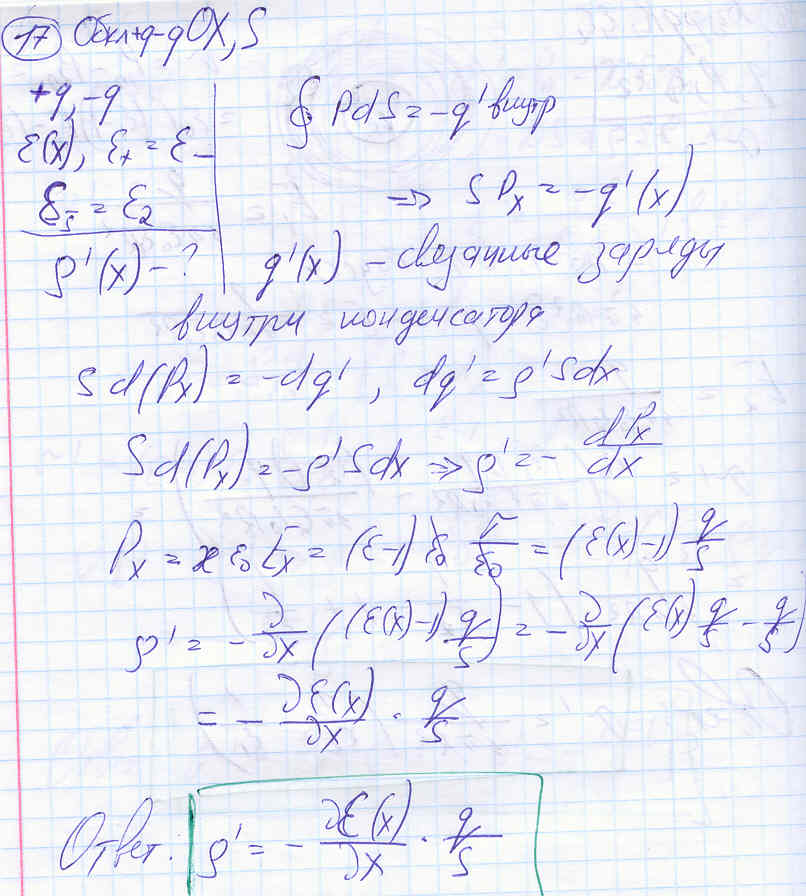 17 Обкл+q-q OX, S
+q, -q
ε(x), ε₊ = ε₋
ε₌ = ε₂
ρ'(x) - ?
∮ PdS = -q' внутр
=> S Pₓ = -q'(x)
q'(x) - связанные заряды
внутри конденсатора
S d(Pₓ) = -dq' , dq' = ρ' S dx
S d(Pₓ) = -ρ' S dx => ρ' = - dPₓ/dx
Pₓ = æ ε₀ Eₓ = (ε-1) ε₀ σ/ε₀ = (ε(x)-1) q/S
ρ' = - ∂/∂x ((ε(x)-1) q/S) = - ∂/∂x (ε(x) q/S - q/S)
= - ∂ε(x)/∂x · q/S
Ответ: ρ' = - ∂ε(x)/∂x · q/S